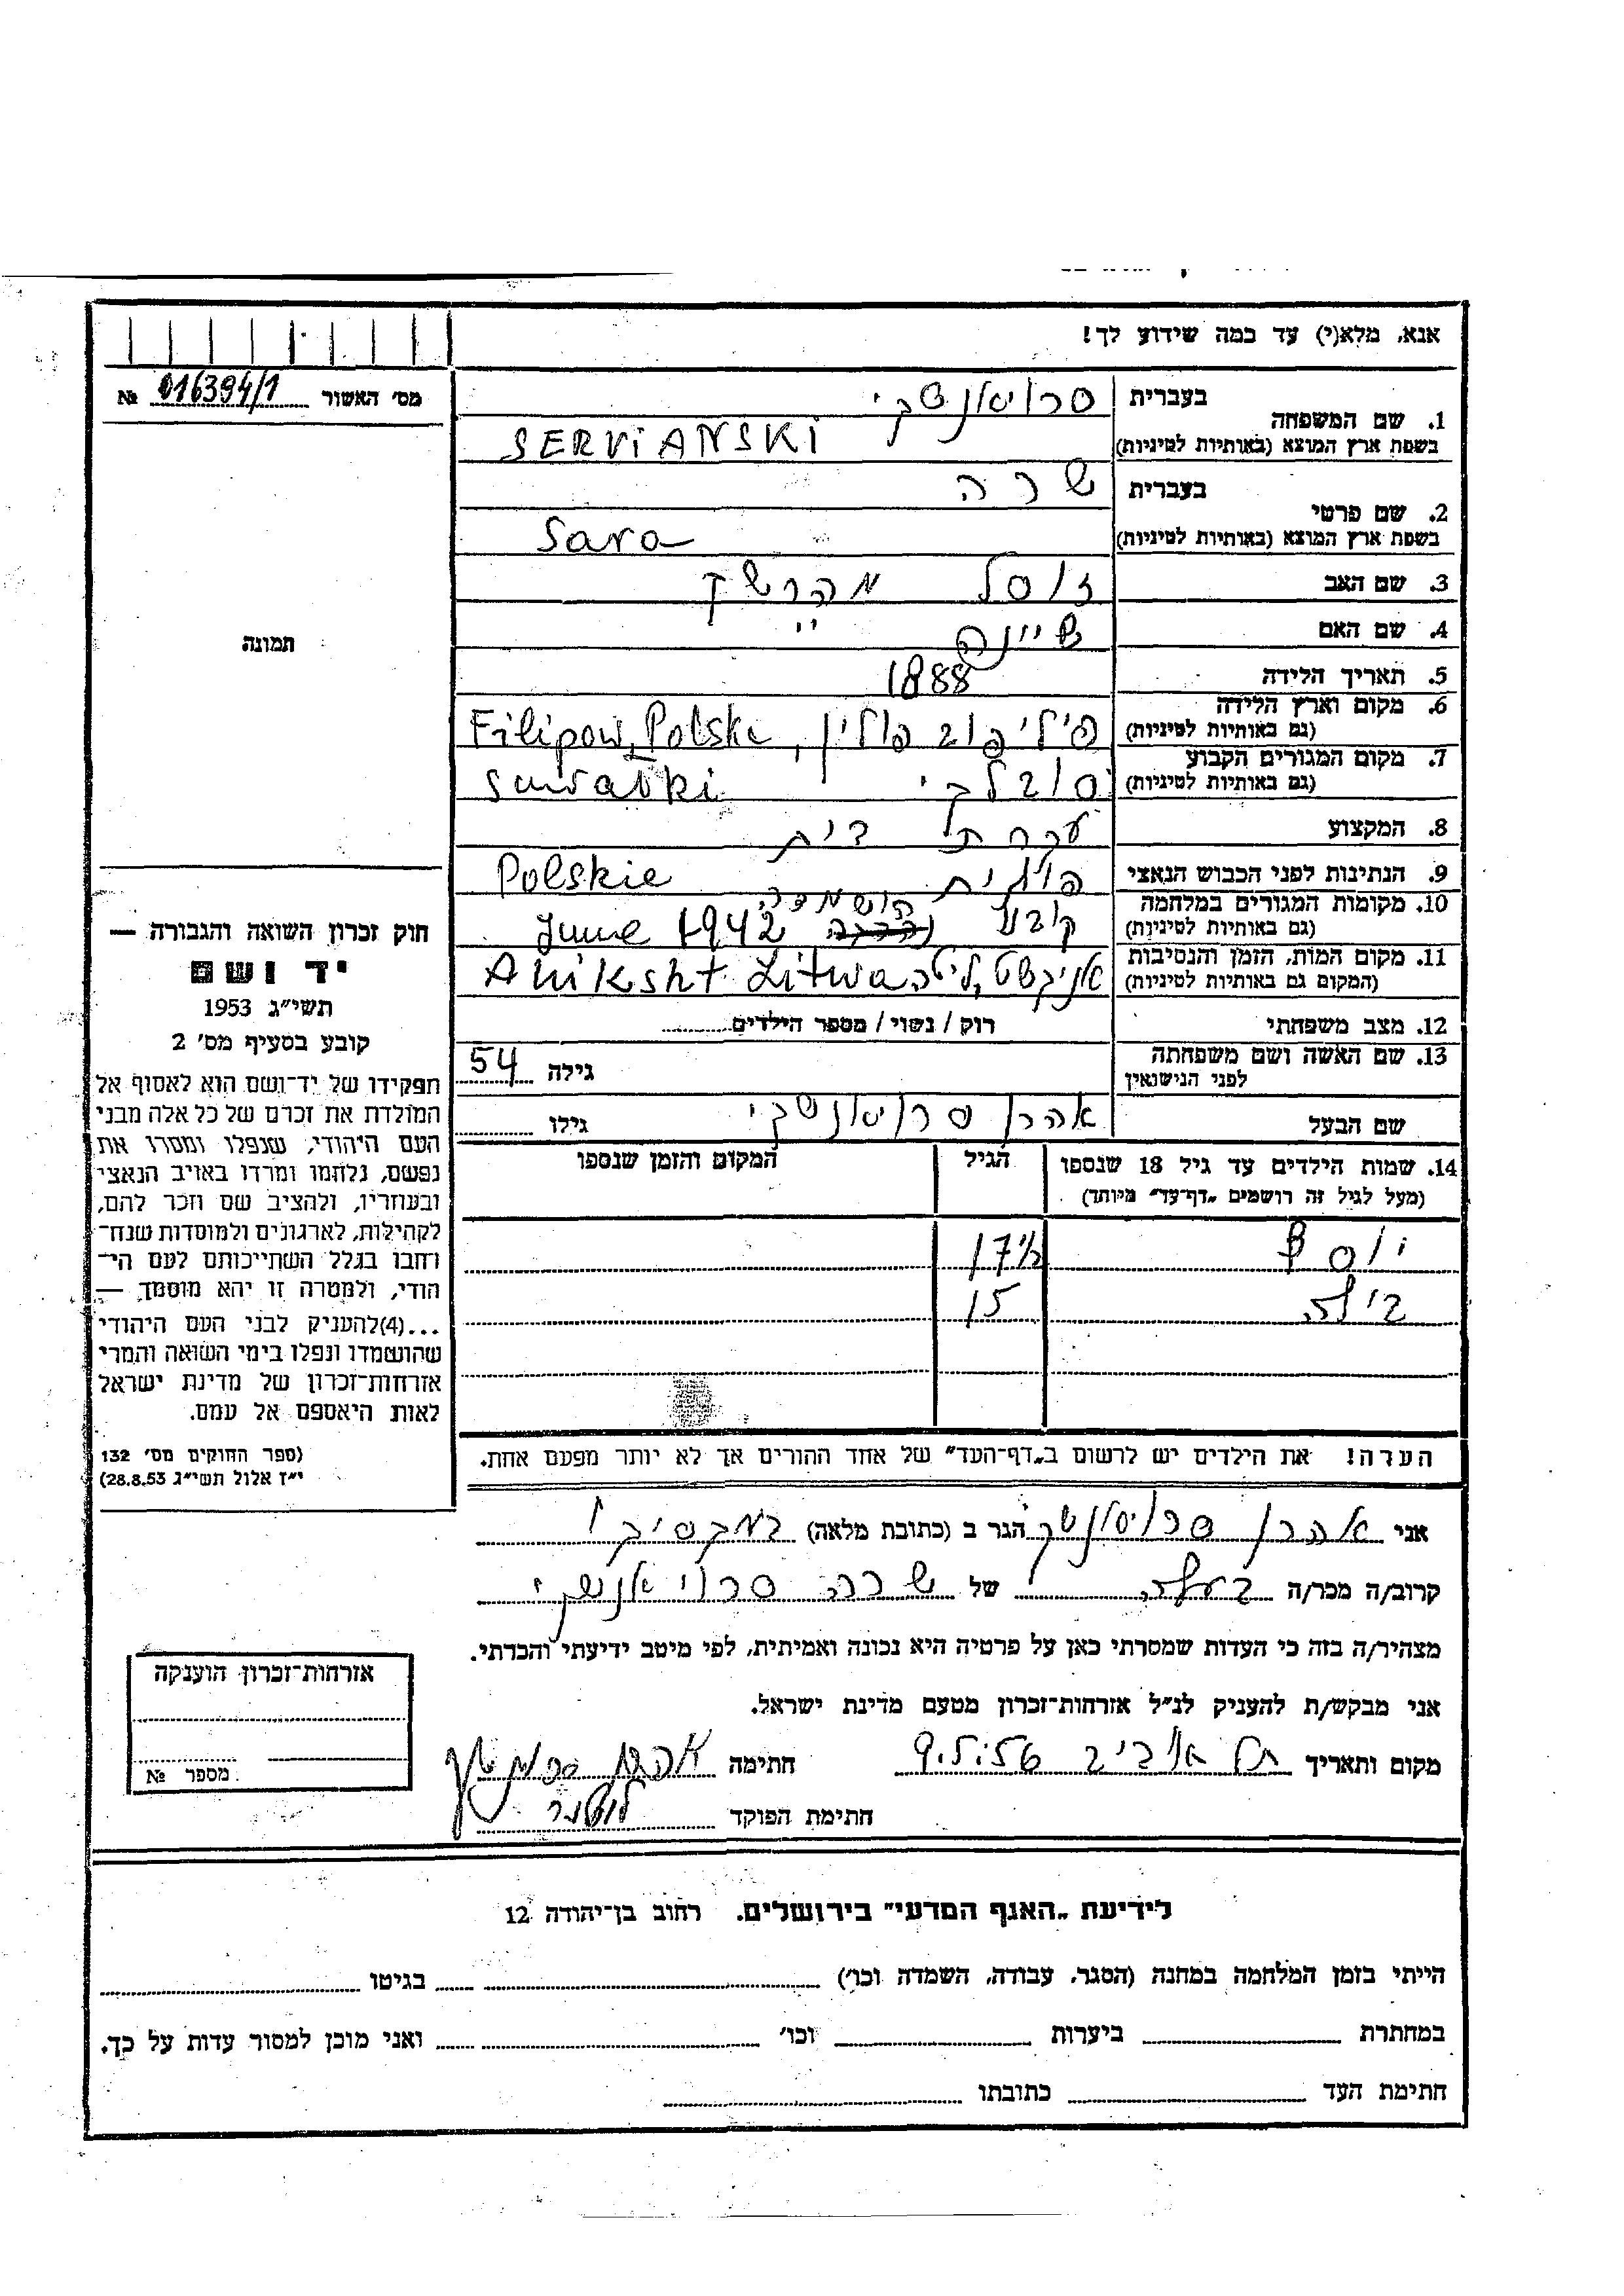 אנא, מלא(י) עד כמה שידוע לך!
מס׳ האשור 016394/1 №
1. שם המשפחה
בעברית סרויאנסקי
בשפת ארץ המוצא (באותיות לטיניות) SERViANSKi
2. שם פרטי
בעברית שרה
בשפת ארץ המוצא (באותיות לטיניות) Sara
3. שם האב
4. שם האם שיינה
5. תאריך הלידה 1888
6. מקום וארץ הלידה
(גם באותיות לטיניות) פיליפוב פולין, Filipow, Polska
7. מקום המגורים הקבוע
(גם באותיות לטיניות) סובלקי Suwałki
8. המקצוע עקרת בית
9. הנתינות לפני הכבוש הנאצי פולנית Polskie
10. מקומות המגורים במלחמה
(גם באותיות לטיניות) קובנו הושמדה June 1942
11. מקום המות, הזמן והנסיבות
(המקום גם באותיות לטיניות) אניקשט, ליטה Aniksht Litwa
12. מצב משפחתי רוק / נשוי / מספר הילדים
13. שם האשה ושם משפחתה
לפני הנישואין גילה 54
שם הבעל אהרן סרויאנסקי גילו
14. שמות הילדים עד גיל 18 שנספו הגיל המקום והזמן שנספו
(מעל לגיל זה רושמים „דף־עד” מיוחד)
יוסף 17½
בילה 15
הערה! את הילדים יש לרשום ב„דף־העד” של אחד ההורים אך לא יותר מפעם אחת.
תמונה
חוק זכרון השואה והגבורה —
יד ושם
תשי״ג 1953
קובע בסעיף מס׳ 2
תפקידו של יד־ושם הוא לאסוף אל
המולדת את זכרם של כל אלה מבני
העם היהודי, שנפלו ומסרו את
נפשם, נלחמו ומרדו באויב הנאצי
ובעוזריו, ולהציב שם וזכר להם,
לקהילות, לארגונים ולמוסדות שנח־
רבו בגלל השתייכותם לעם הי־
הודי, ולמטרה זו יהא מוסמך —
...(4)להעניק לבני העם היהודי
שהושמדו ונפלו בימי השואה והמרי
אזרחות־זכרון של מדינת ישראל
לאות היאספם אל עמם.
(ספר החוקים מס׳ 132
י״ז אלול תשי״ג 28.8.53)
אני אהרן סרויאנסקי הגר ב (כתובת מלאה)
קרוב/ה מכר/ה בעלה של שרה סרויאנסקי
מצהיר/ה בזה כי העדות שמסרתי כאן על פרטיה היא נכונה ואמיתית, לפי מיטב ידיעתי והכרתי.
אני מבקש/ת להעניק לנ״ל אזרחות־זכרון מטעם מדינת ישראל.
מקום ותאריך תל אביב חתימה
חתימת הפוקד
אזרחות־זכרון הוענקה
מספר №
לידיעת „האגף המדעי” בירושלים. רחוב בן־יהודה 12
הייתי בזמן המלחמה במחנה (הסגר, עבודה, השמדה וכו׳) בגיטו
במחתרת ביערות וכו׳ ואני מוכן למסור עדות על כך.
חתימת העד כתובתו